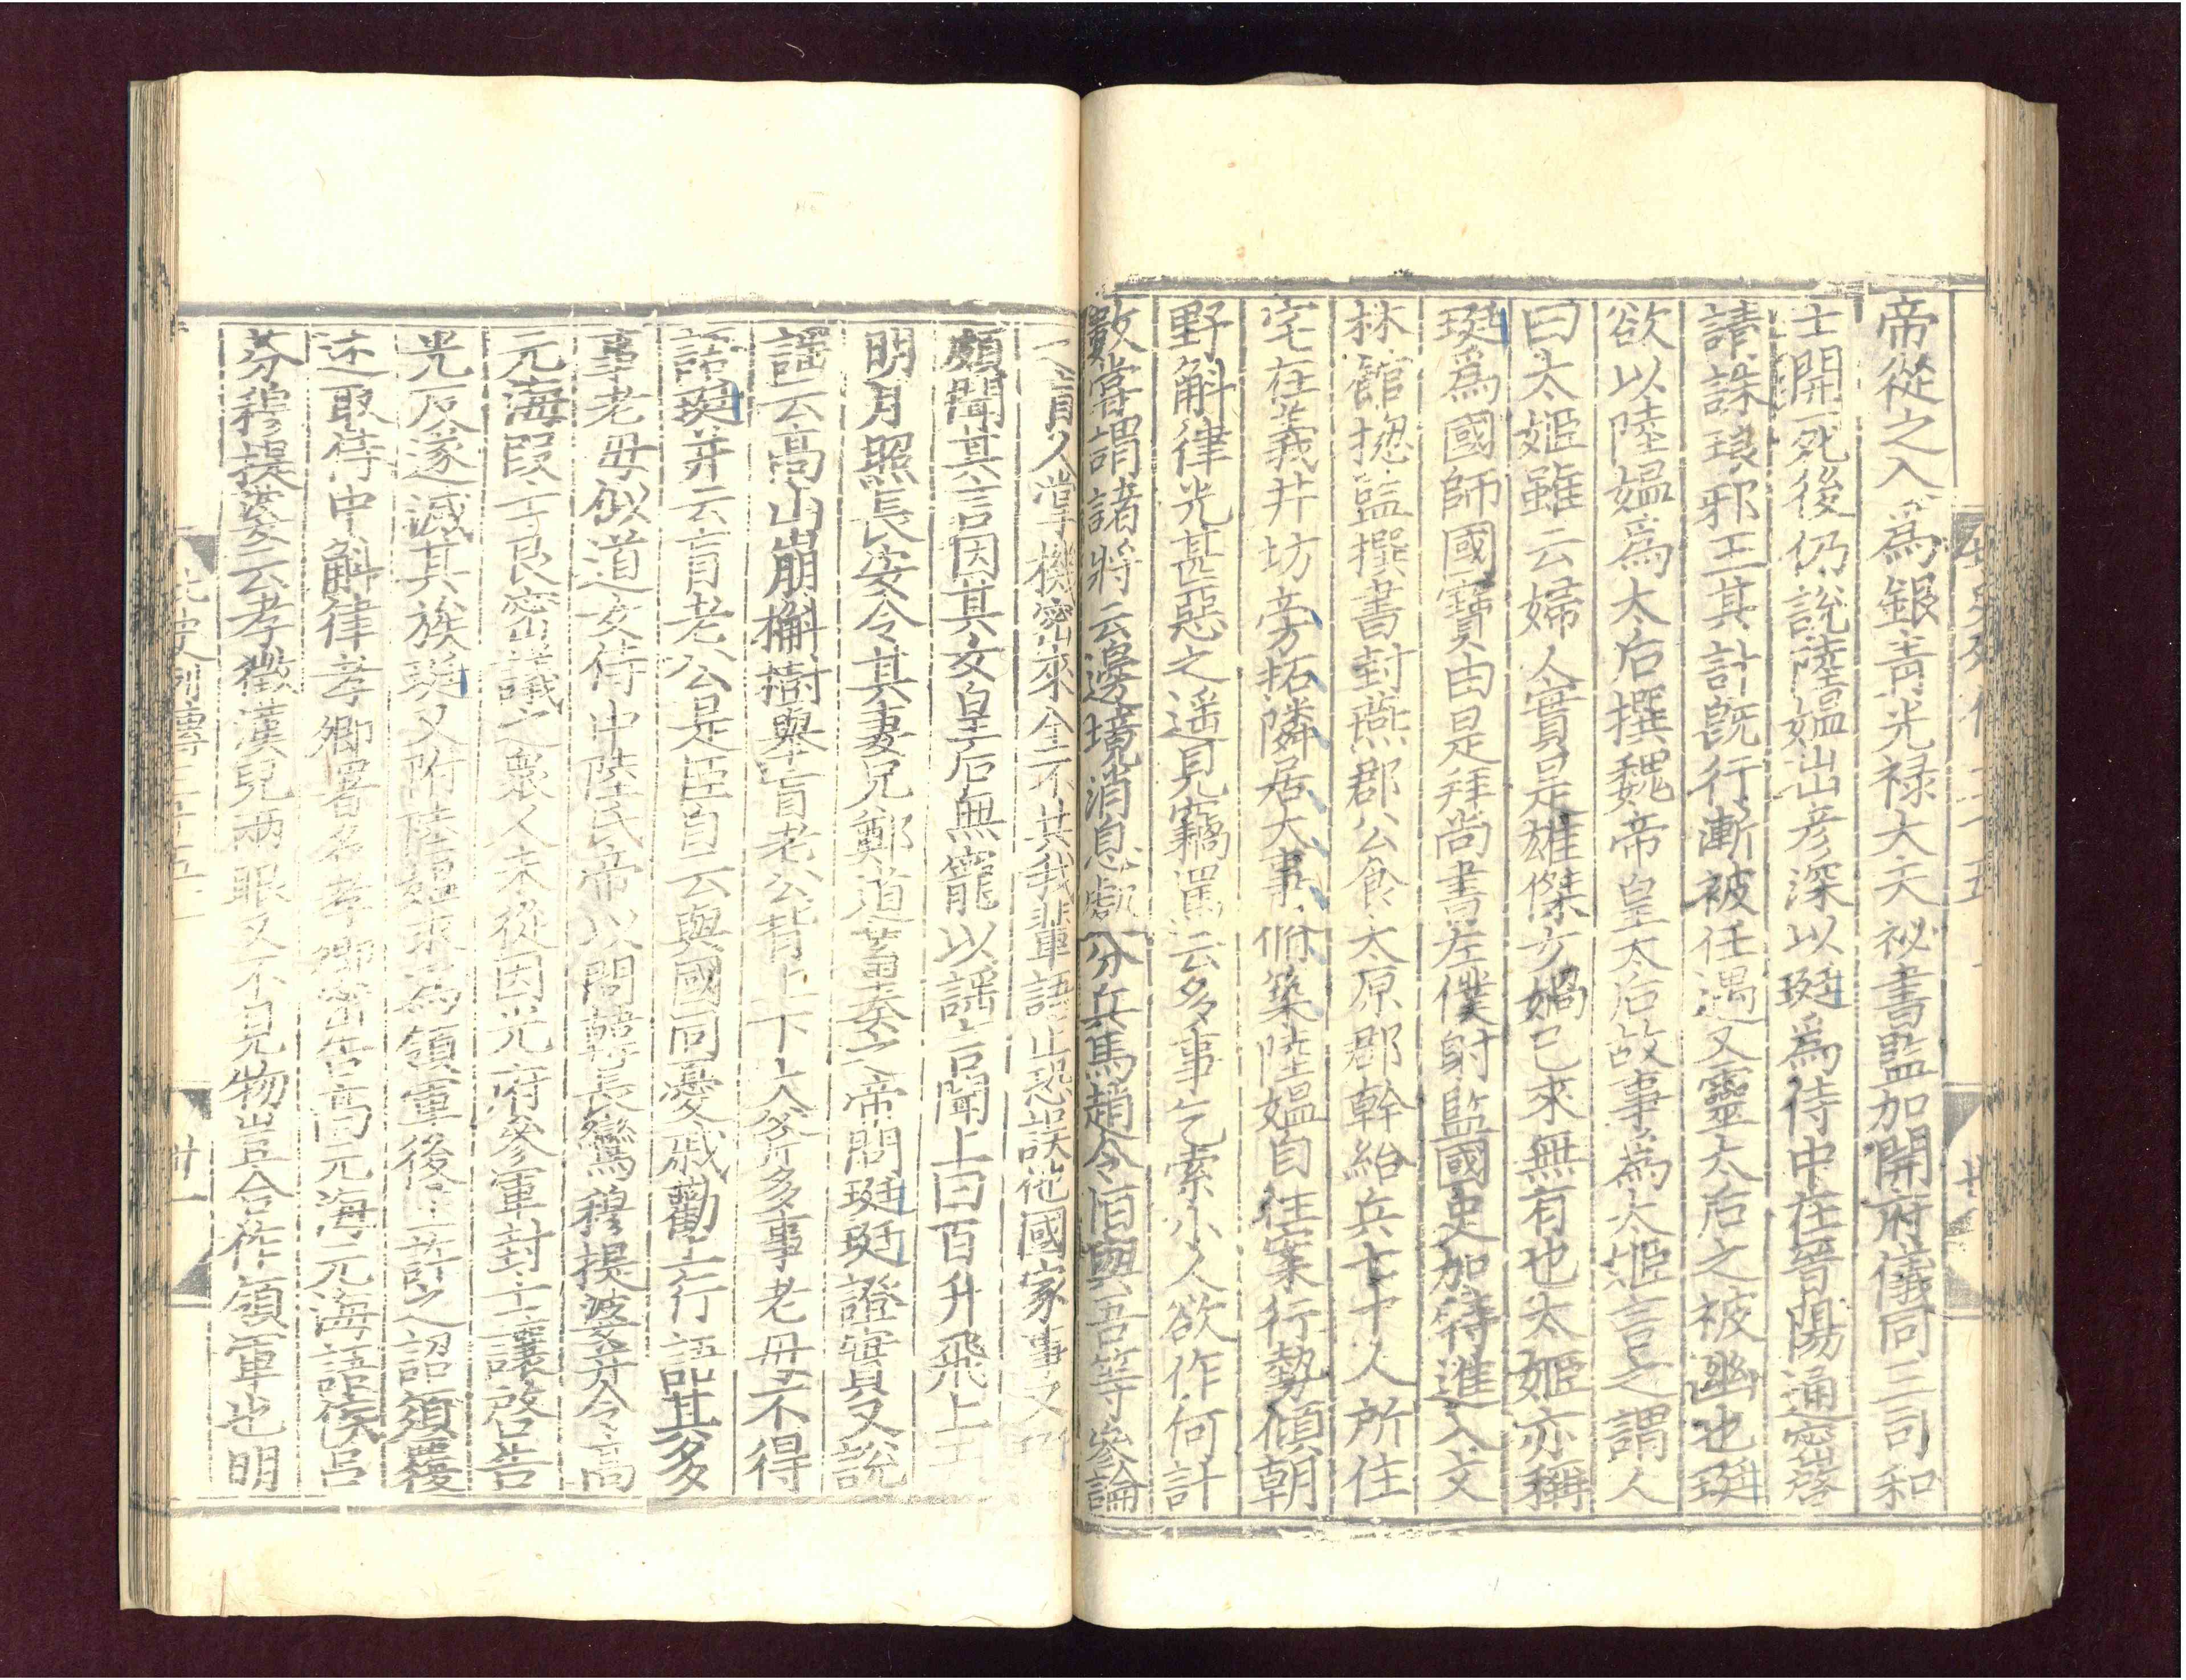 帝從之入爲銀青光禄大夫祕書監加開府儀同三司和
士開死後仍說陸媪出彦深以珽爲侍中在晉陽通密啓
請誅琅邪王其計既行漸被任遇又靈太后之被幽也珽
欲以陸媪爲太后撰魏帝皇太后故事爲太姬言之謂人
曰太姬雖云婦人實是雄傑女媧已來無有也太姬亦稱
珽爲國師國寶由是拜尚書左僕射監國史加特進入文
林館揔監撰書封燕郡公食太原郡幹給兵七十人所住
宅在義井坊旁拓隣居大事脩築陸媪自往案行勢傾朝
野斛律光甚惡之遥見竊罵云多事乞索小人欲作何計
數嘗謂諸將云邊境消息處分兵馬趙令恒與吾等參論
盲人掌機密來全不共我輩語止恐誤他國家事又
頗聞其言因其女皇后無寵以謡言聞上曰百升飛上
明月照長安令其妻兄鄭道蓋奏之帝問珽珽證實又說
謡云高山崩槲樹舉盲老公背上下大斧多事老母不得
語珽并云盲老公是臣自云與國同憂戚勸上行語其多
事老母似道女侍中陸氏帝以問韓長鸞穆提婆并令高
元海段士良密議之衆人未從因光府參軍封士讓啓告
光反遂滅其族珽又附陸媪求爲領軍後主許之詔須覆
述取侍中斛律孝卿署名孝卿密告高元海元海語侯吕
芬穆提婆云孝徵漢兒兩眼又不見物豈合作領軍也明
北史列傳三十五
卅一